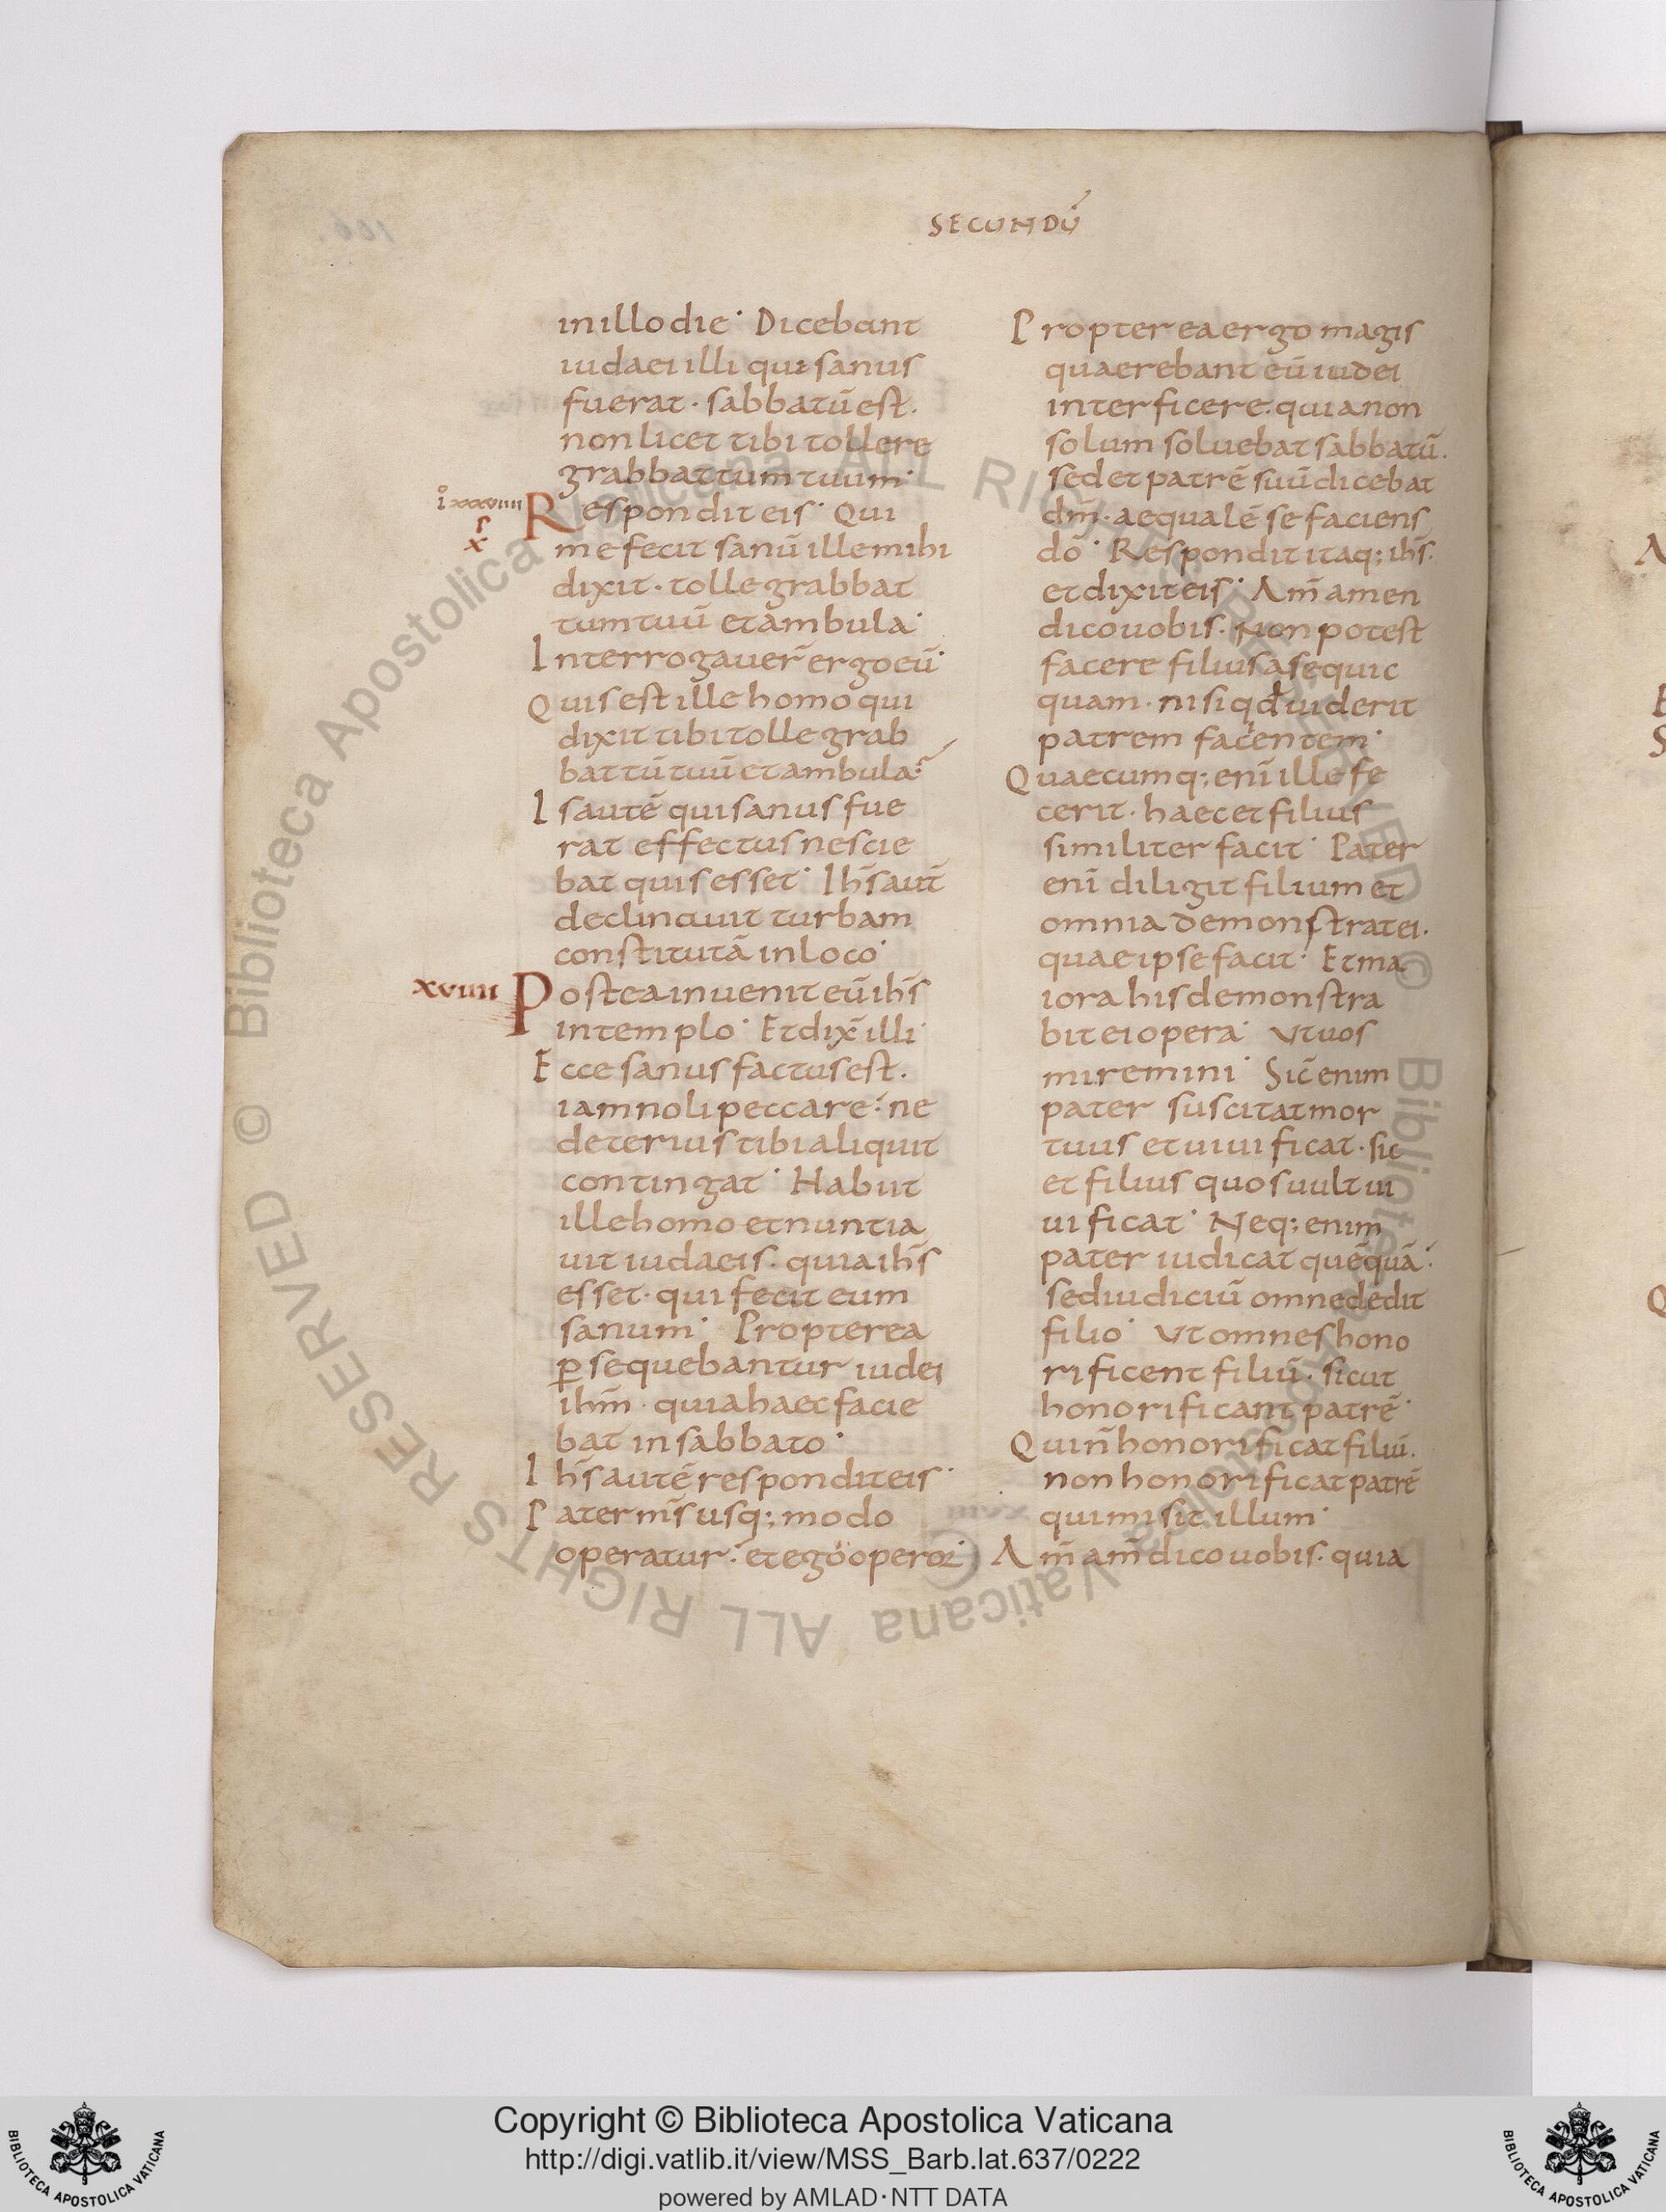 SECUNDŪ
in illo die· Dicebant
iudaei illi qui sanus
fuerat· sabbatū est·
non licet tibi tollere
grabbattum tuum·
i xxxviiii
x
Respondit eis· Qui
me fecit sanū ille mihi
dixit· tolle grabbat
tum tuū et ambula·
Interrogauer̄ ergo eū·
Quis est ille homo qui
dixit tibi tolle grab
battū tuū et ambula?
Is autē qui sanus fue
rat effectus nescie
bat quis esset· Ihs̄ aut̄
declinauit turbam
constitutā in loco·
xviiii
Postea inuenit eū ihs̄
in templo· Et dix̄ illi·
Ecce sanus factus est·
iam noli peccare· ne
deterius tibi aliquit
contingat· Habiit
ille homo et nuntia
uit iudaeis· quia ihs̄
esset· qui fecit eum
sanum· Propterea
ꝑsequebantur iudei
ihm̄· quia haec facie
bat in sabbato·
Ihs̄ autē respondit eis·
Pater ms̄ usq; modo
operatur· et ego operor·
Propterea ergo magis
quaerebant eū iudei
interficere· quia non
solum soluebat sabbatū·
sed et patrē suū dicebat
dm̄· aequalē se faciens
dō· Respondit itaq; ihs̄·
et dixit eis· Am̄ amen
dico uobis· Non potest
facere filius a se quic
quam· nisi qd uiderit
patrem facientem·
Quaecumq; enī ille fe
cerit· haec et filius
similiter facit· Pater
enī diligit filium et
omnia demonstrat ei·
quae ipse facit· Et ma
iora his demonstra
bit ei opera· Ut uos
miremini· Sic enim
pater suscitat mor
tuus et uiuificat· sic
et filius quos uult ui
uificat· Neq; enim
pater iudicat quēquā·
sed iudiciū omne dedit
filio· Ut omnes hono
rificent filiū· sicut
honorificant patrē·
Qui n̄ honorificat filiū·
non honorificat patrē
qui misit illum·
Am̄ am̄ dico uobis· quia
Copyright © Biblioteca Apostolica Vaticana
http://digi.vatlib.it/view/MSS_Barb.lat.637/0222
powered by AMLAD·NTT DATA
BIBLIOTECA APOSTOLICA VATICANA
BIBLIOTECA APOSTOLICA VATICANA
© Biblioteca Apostolica Vaticana ALL RIGHTS RESERVED © Biblioteca Apostolica Vaticana ALL RIGHTS RESERVED